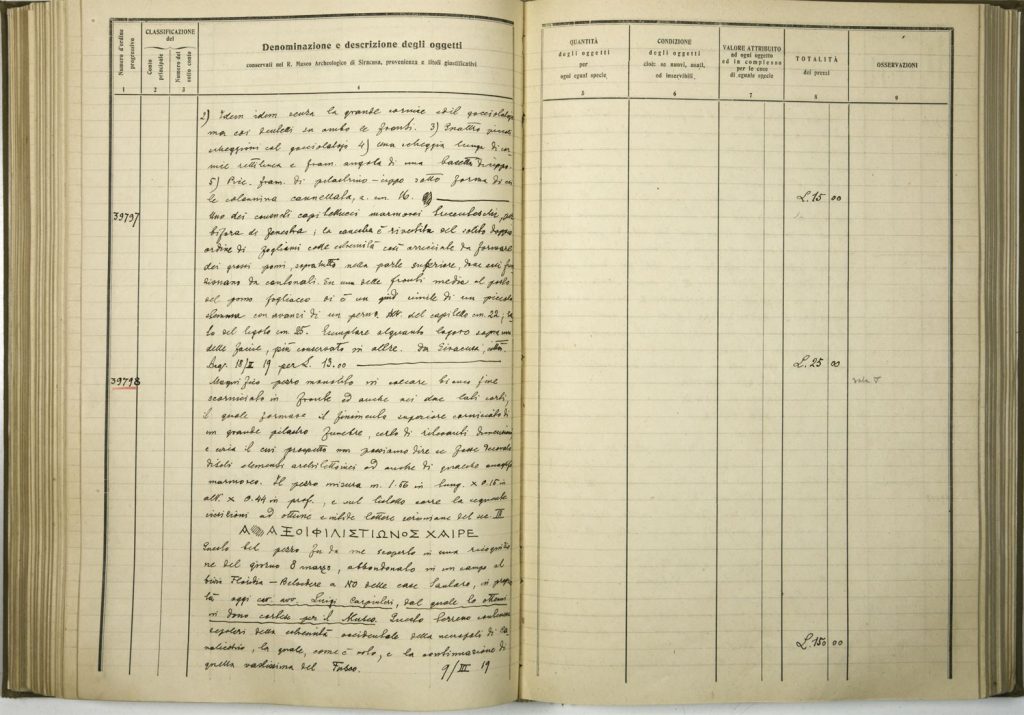 Numero d'ordine progressivo
CLASSIFICAZIONE del
Conto principale
Numero del sotto conto
Denominazione e descrizione degli oggetti
conservati nel R. Museo Archeologico di Siracusa, provenienza e titoli giustificativi
1 2 3 4
2) Idem idem senza la grande cornice ed il gocciolatoio
ma coi dentelli su ambo le fronti. 3) Quattro piccoli
scheggioni col gocciolatoio 4) Una scheggia lunga di cor-
nice rettilinea e fram. angolo di una basetta di cippo
5) Picc. fram. di pilastrino-cippo sotto forma di
le colonnina cannellata, a. cm. 16.
39797
Uno dei consueti capitellucci marmorei
bifora di finestra; la canestra è rivestita del solito doppio
ordine di fogliami colle estremità così arricciate da formare
dei grossi pomi, sopratutto nella parte superiore, dove essi fun
zionano da cantonali. In una delle fronti media al posto
del pomo fogliaceo vi è un quid simile di un piccolo
stemma con avanzi di un perno. Alt. del capitello cm. 22; la
to del 25. Esemplare alquanto logoro sopra una
delle faccie, più conservato in altre. Da Siracusa,
Acq. 18/II 19 per L. 15.00
39798
Magnifico pezzo monolito in calcare bianco fine
scorniciato in fronte ed anche nei due lati corti,
il quale formava il superiore corniciato di
un grande pilastro funebre, certo di rilevanti dimensioni
e circa il cui prospetto non possiamo dire se fosse decorato
di soli elementi architettonici od anche di qualche
marmoreo. Il pezzo misura m. 1.56 in lung. x 0.15 in
alt. x 0.44 in prof., e sul listello corre la seguente
iscrizione ad ottime e nitide lettere del sec. III
ΑΞΟΙΦΙΛΙΣΤΙΩΝΟΣ ΧΑΙΡΕ
Questo bel pezzo fu da me scoperto in una ricognizio
ne del giorno 8 marzo, abbandonato in un campo al
bivio Floridia - Belvedere a NO delle case Santoro, in proprie
tà oggi cav. avv. Luigi Carpinteri, dal quale lo ottenni
in dono cortese per il Museo. Questo terreno contiene
sepolcri della estremità occidentale della necropoli di
, la quale, come è noto, è la continuazione di
quella vastissima del Fusco. 9/III 19
QUANTITÀ degli oggetti per ogni egual specie
CONDIZIONE degli oggetti cioè: se nuovi, usati, od inservibili
VALORE ATTRIBUITO ad ogni oggetto ed in complesso per le cose di eguale specie
TOTALITÀ dei prezzi
OSSERVAZIONI
5 6 7 8 9
L. 15 00
L. 25 00
L. 150 00